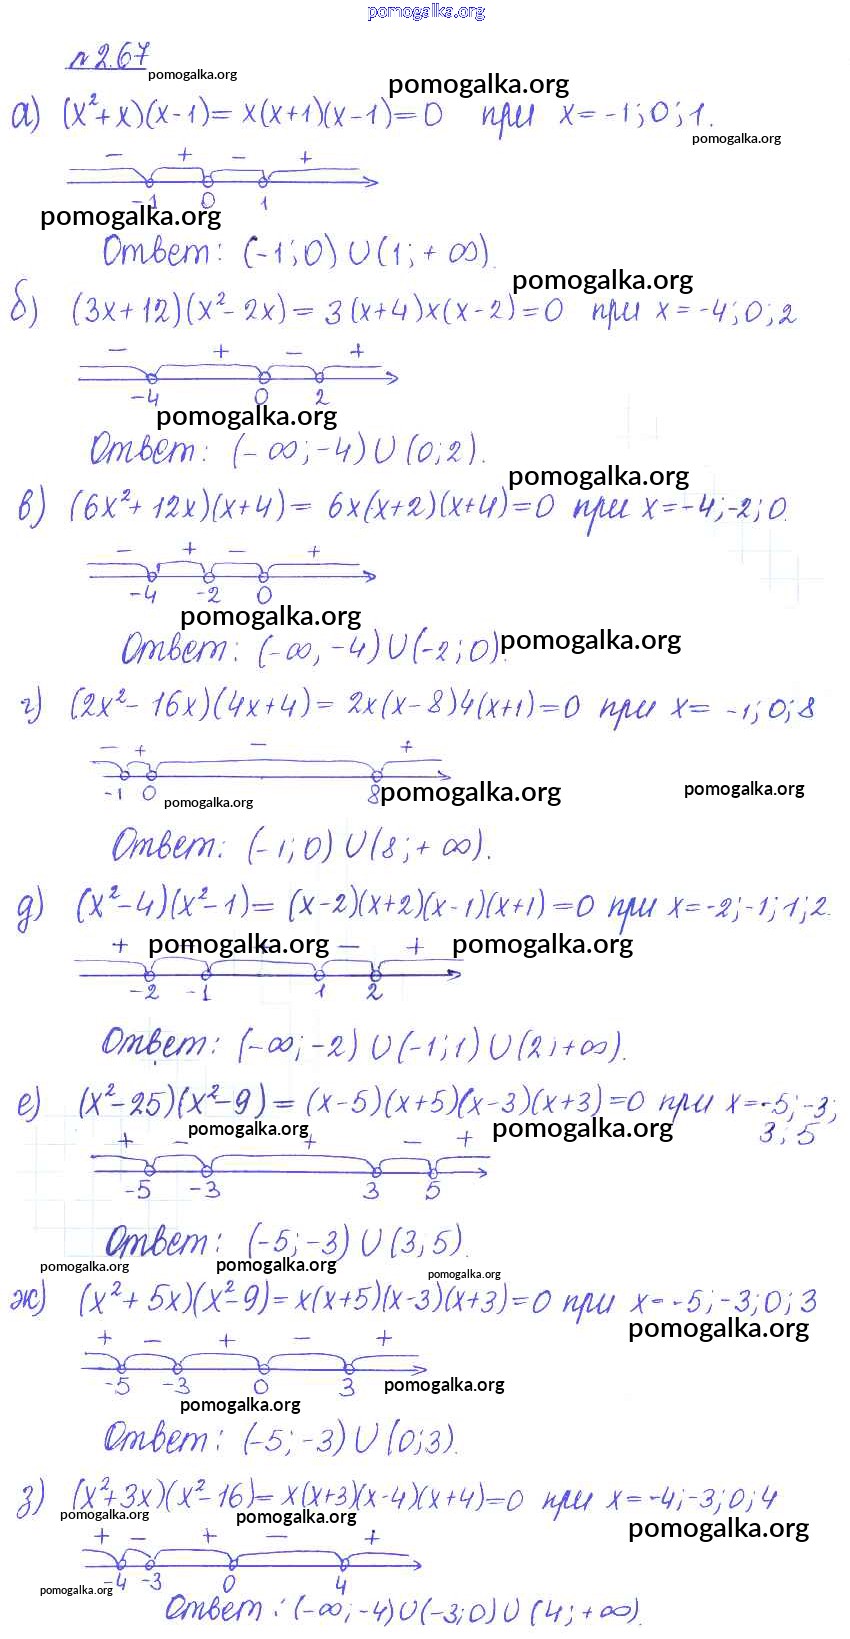 pomogalka.org
№2.67
pomogalka.org
pomogalka.org
а) (x²+x)(x-1)= x(x+1)(x-1)=0 при x=-1;0;1.
pomogalka.org
- + - +
-1 0 1
pomogalka.org
Ответ: (-1;0)∪(1;+∞).
pomogalka.org
б) (3x+12)(x²-2x)=3(x+4)x(x-2)=0 при x=-4;0;2
- + - +
-4 0 2
pomogalka.org
Ответ: (-∞;-4)∪(0;2).
pomogalka.org
в) (6x²+12x)(x+4)= 6x(x+2)(x+4)=0 при x=-4;-2;0.
- + - +
-4 -2 0
pomogalka.org
Ответ: (-∞,-4)∪(-2;0).
pomogalka.org
г) (2x²-16x)(4x+4)= 2x(x-8)4(x+1)=0 при x= -1;0;8
- + - +
-1 0 8
pomogalka.org
pomogalka.org
pomogalka.org
Ответ: (-1;0)∪(8;+∞).
д) (x²-4)(x²-1)= (x-2)(x+2)(x-1)(x+1)=0 при x=-2;-1;1;2.
+ pomogalka.org - + pomogalka.org
-2 -1 1 2
Ответ: (-∞;-2)∪(-1;1)∪(2;+∞).
е) (x²-25)(x²-9)=(x-5)(x+5)(x-3)(x+3)=0 при x=-5;-3;
3;5
pomogalka.org
pomogalka.org
+ - + - +
-5 -3 3 5
Ответ: (-5;-3)∪(3;5).
pomogalka.org
pomogalka.org
pomogalka.org
ж) (x²+5x)(x²-9)=x(x+5)(x-3)(x+3)=0 при x=-5;-3;0;3
pomogalka.org
+ - + - +
-5 -3 0 3
pomogalka.org
pomogalka.org
Ответ: (-5;-3)∪(0;3).
з) (x²+3x)(x²-16)=x(x+3)(x-4)(x+4)=0 при x=-4;-3;0;4
pomogalka.org
pomogalka.org
pomogalka.org
+ - + - +
-4 -3 0 4
pomogalka.org
Ответ: (-∞;-4)∪(-3;0)∪(4;+∞).